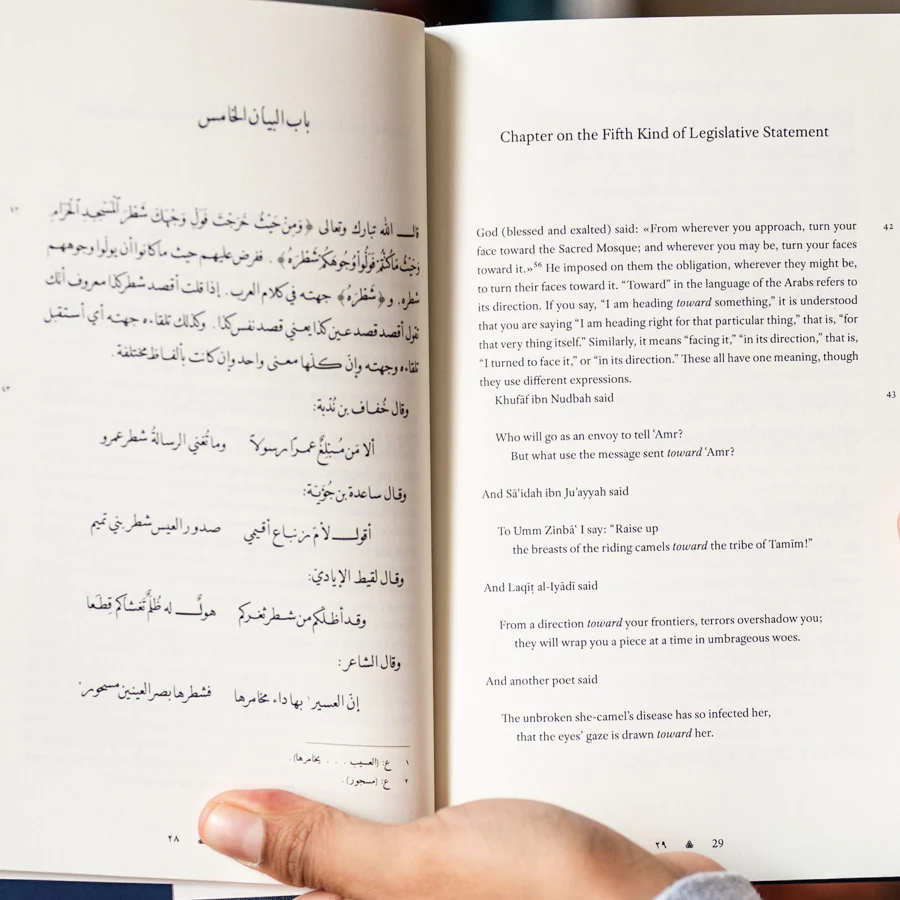 باب البيان الخامس
٤٢
قال الله تبارك وتعالى ﴿وَمِنْ حَيْثُ خَرَجْتَ فَوَلِّ وَجْهَكَ شَطْرَ ٱلْمَسْجِدِ ٱلْحَرَامِ
وَحَيْثُ مَا كُنْتُمْ فَوَلُّوا وُجُوهَكُمْ شَطْرَهُ﴾ . ففرض عليهم حيث ما كانوا أن يولوا وجوههم
شطره. و﴿شَطْرَهُ﴾ جهته في كلام العرب. إذا قلت أقصد شطر كذا معروف أنك
تقول أقصد قصد عين كذا يعني قصد نفس كذا. وكذلك تلقاءه جهته أي أستقبل
تلقاءه وجهته وإنّ كلّها معنى واحد وإن كانت بألفاظ مختلفة .
٤٣
وقال خُفاف بن نُدْبة:
ألا مَن مُبْلِغٌ عمرًا رسولاً وما تُغني الرسالةُ شطر عمرو
وقال ساعدة بن جُؤَيّة:
أقول لأمّ زنباع أقيمي صدور العيس شطر بني تميم
وقال لقيط الإياديّ:
وقد أظلّكم من شطر ثغركم هولٌ له ظُلَمٌ تغشاكم قِطَعا
وقال الشاعر:
إنّ العسير١ بها داء مخامرها فشطرها بصر العينين مسحور٢
١ ع: (العسيب . . . يخامرها).
٢ ع: (مسجور).
٢٨
Chapter on the Fifth Kind of Legislative Statement
God (blessed and exalted) said: «From wherever you approach, turn your
42
face toward the Sacred Mosque; and wherever you may be, turn your faces
toward it.»56 He imposed on them the obligation, wherever they might be,
to turn their faces toward it. “Toward” in the language of the Arabs refers to
its direction. If you say, “I am heading toward something,” it is understood
that you are saying “I am heading right for that particular thing,” that is, “for
that very thing itself.” Similarly, it means “facing it,” “in its direction,” that is,
“I turned to face it,” or “in its direction.” These all have one meaning, though
they use different expressions.
Khufāf ibn Nudbah said
43
Who will go as an envoy to tell ʿAmr?
But what use the message sent toward ʿAmr?
And Sāʿidah ibn Juʾayyah said
To Umm Zinbāʿ I say: “Raise up
the breasts of the riding camels toward the tribe of Tamīm!”
And Laqīṭ al-Iyādī said
From a direction toward your frontiers, terrors overshadow you;
they will wrap you a piece at a time in umbrageous woes.
And another poet said
The unbroken she-camel’s disease has so infected her,
that the eyes’ gaze is drawn toward her.
٢٩ 29